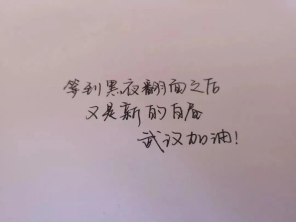 等到黑夜翻面之后
又是新的白昼
武汉加油!